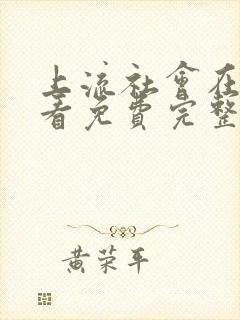 上流社會在
看免費完整
黃荣平